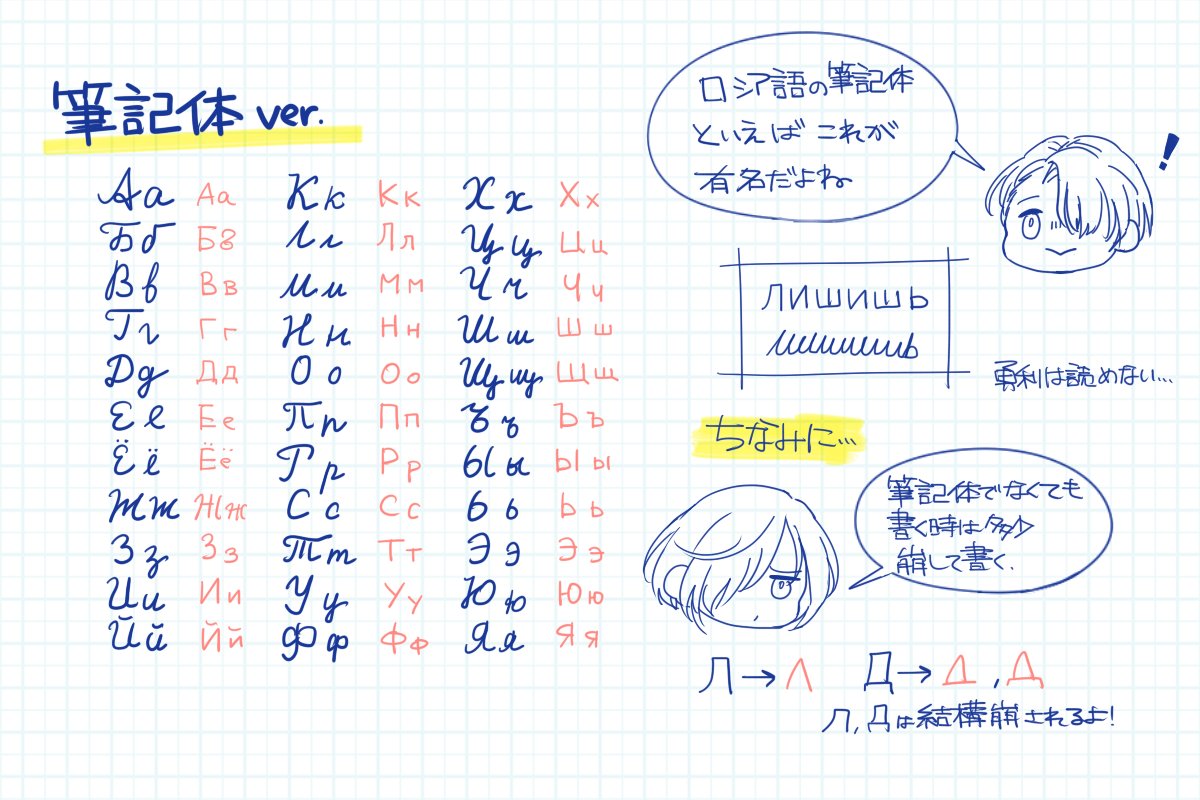 筆記体 ver.
Аа Аа Кк Кк Хх Хх
Бб Бб Лл Лл Цц Цц
Вв Вв Мм Мм Чч Чч
Гг Гг Нн Нн Шш Шш
Дд Дд Оо Оо Щщ Щщ
Ее Ее Пп Пп Ъъ Ъъ
Ёё Ёё Рр Рр Ыы Ыы
Жж Жж Сс Сс Ьь Ьь
Зз Зз Тт Тт Ээ Ээ
Ии Ии Уу Уу Юю Юю
Йй Йй Фф Фф Яя Яя
ロシア語の筆記体
といえば これが
有名だよね
!
лишишь
лишишь
勇利は読めない…
ちなみに…
筆記体でなくても
書く時は多少
崩して書く.
Л→Λ Д→Д , Д
Л, Дは結構崩されるよ!